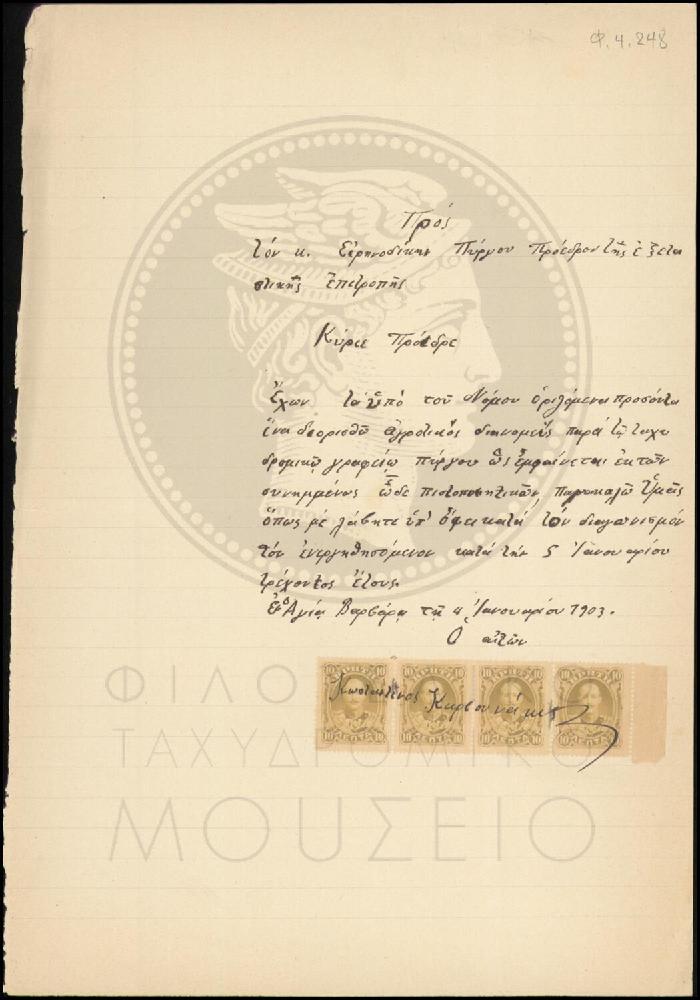 Φ.4.248
Πρός
τόν κ. Εἰρηνοδίκην Πύργου Πρόεδρον τῆς ἐξετα
στικῆς ἐπιτροπῆς
Κύριε Πρόεδρε
Ἔχων τά ὑπό τοῦ Νόμου ὁριζόμενα προσόντα
ἵνα διορισθῶ ἀγροτικός διανομεύς παρά τῷ ταχυ
δρομικῷ γραφείῳ Πύργου ὡς ἐμφαίνεται ἐκ τῶν
συνημμένος ὧδε πιστοποιητικῶν, παρακαλῶ Ὑμᾶς
ὅπως μέ λάβητε ὑπ' ὄψει κατά τόν διαγωνισμόν
τόν ἐνεργηθησόμενον κατά τήν 5 Ἰανουαρίου
τρέχοντος ἔτους.
Ἐν Ἁγίᾳ Βαρβάρᾳ τῇ 4 Ἰανουαρίου 1903.
Ὁ αἰτῶν
Κωνσταντῖνος
ΚΡΗΤΗ ΚΡΗΤΗ ΚΡΗΤΗ ΚΡΗΤΗ
10 ΛΕΠΤΑ 10 10 ΛΕΠΤΑ 10 10 ΛΕΠΤΑ 10 10 ΛΕΠΤΑ 10
ΦΙΛΟ
ΤΑΧΥΔΡΟΜΙΚΟ
ΜΟΥΣΕΙΟ